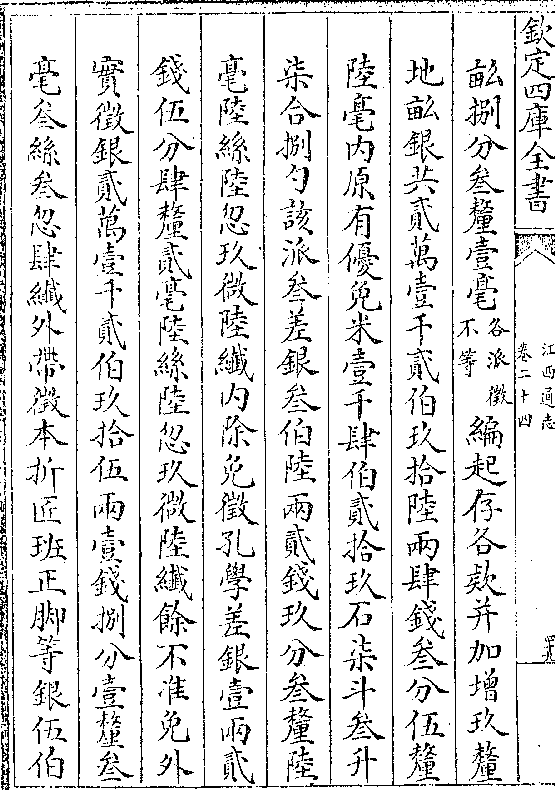 欽定四庫全書
江西通志
卷二十四
畆捌分叁釐壹毫各派徵不等編起存各欵并加增玖釐
地畆銀共貳萬壹千貳伯玖拾陸兩肆錢叁分伍釐
陸毫内原有優免米壹千肆伯貳拾玖石柒斗叁升
柒合捌勺該派叁差銀叁伯陸兩貳錢玖分叁釐陸
毫陸絲陸忽玖微陸纎内除免徵孔學差銀壹兩貳
錢伍分肆釐貳毫陸絲陸忽玖微陸纎餘不准免外
實徵銀貳萬壹千貳伯玖拾伍兩壹錢捌分壹釐叁
毫叁絲叁忽肆纎外帶徵本折匠班正脚等銀伍伯